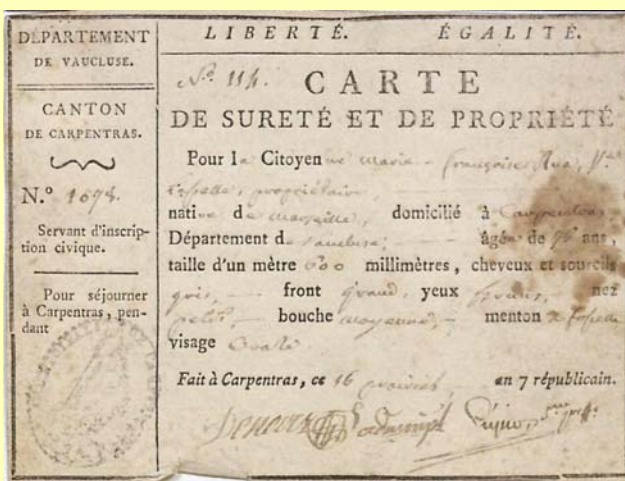 DÉPARTEMENT
DE VAUCLUSE.
CANTON
DE CARPENTRAS.
N.º 1098.
Servant d'inscrip-
tion civique.
Pour séjourner
à Carpentras, pen-
dant
LIBERTÉ. ÉGALITÉ.
N.º 114.
CARTE
DE SURETÉ ET DE PROPRIÉTÉ
Pour la Citoyenne marie - françoise
propriétaire
native de marseille, domicilié à Carpentras
Département de vaucluse, âgée de ans,
taille d'un mètre 600 millimètres, cheveux et sourcils
gris, front grand, yeux nez
petit, bouche moyenne, menton
visage ovale
Fait à Carpentras, ce 16 prairial an 7 républicain.